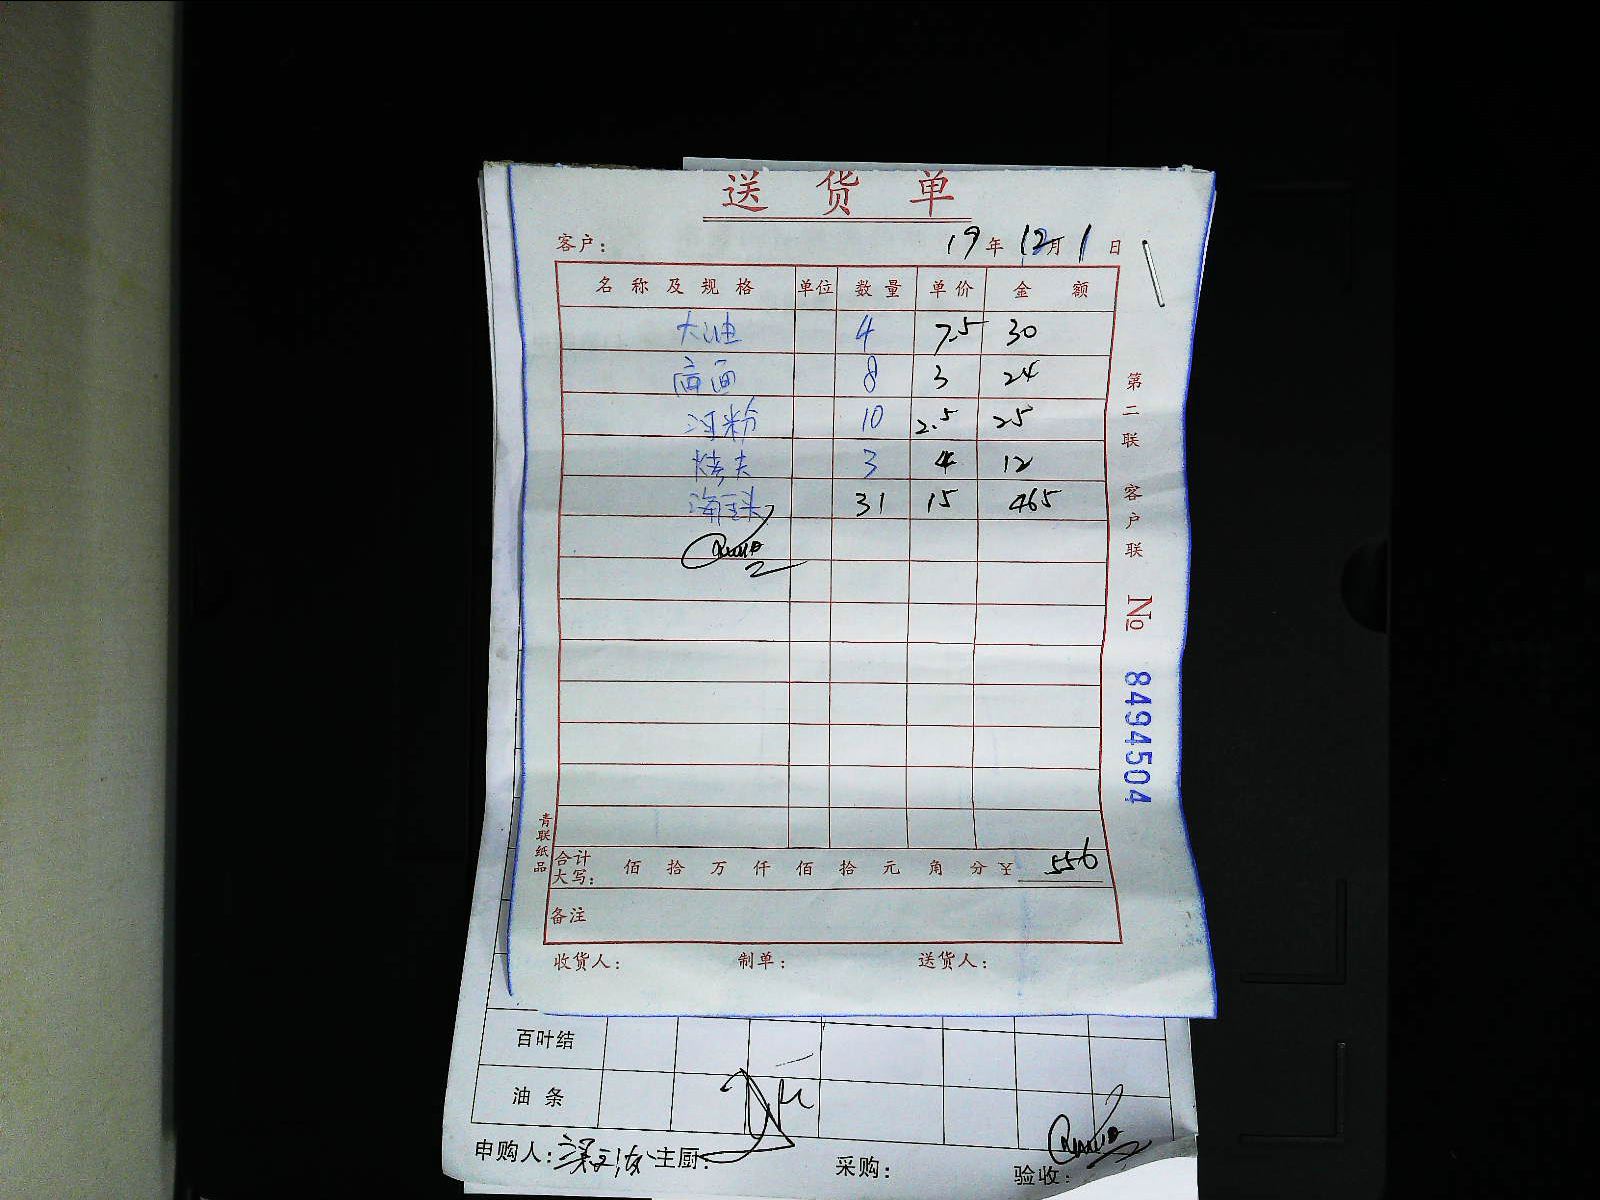 送货单
客户： 19年12月1日
名称及规格 单位 数量 单价 金额
大油 4 7.5 30
8 3 24
河粉 10 2.5 25
烤夫 3 4 12
31 15 465
合计大写： 佰 拾 万 仟 佰 拾 元 角 分 ¥ 556
备注
收货人： 制单： 送货人：
第二联 客户联 No 8494504
青联纸品
百叶结
油条
申购人： 主厨： 采购： 验收：